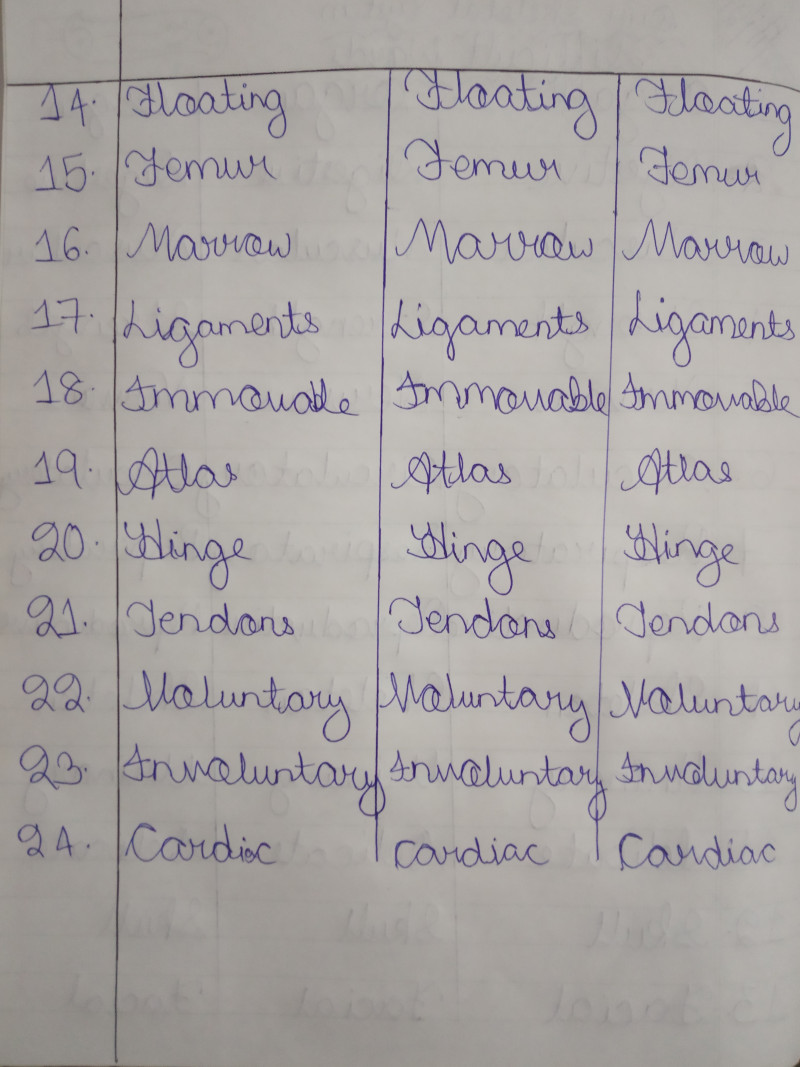 14. Floating Floating Floating
15. Femur Femur Femur
16. Marrow Marrow Marrow
17. Ligaments Ligaments Ligaments
18. Immovable Immovable Immovable
19. Atlas Atlas Atlas
20. Hinge Hinge Hinge
21. Tendons Tendons Tendons
22. Voluntary Voluntary Voluntary
23. Involuntary Involuntary Involuntary
24. Cardiac Cardiac Cardiac